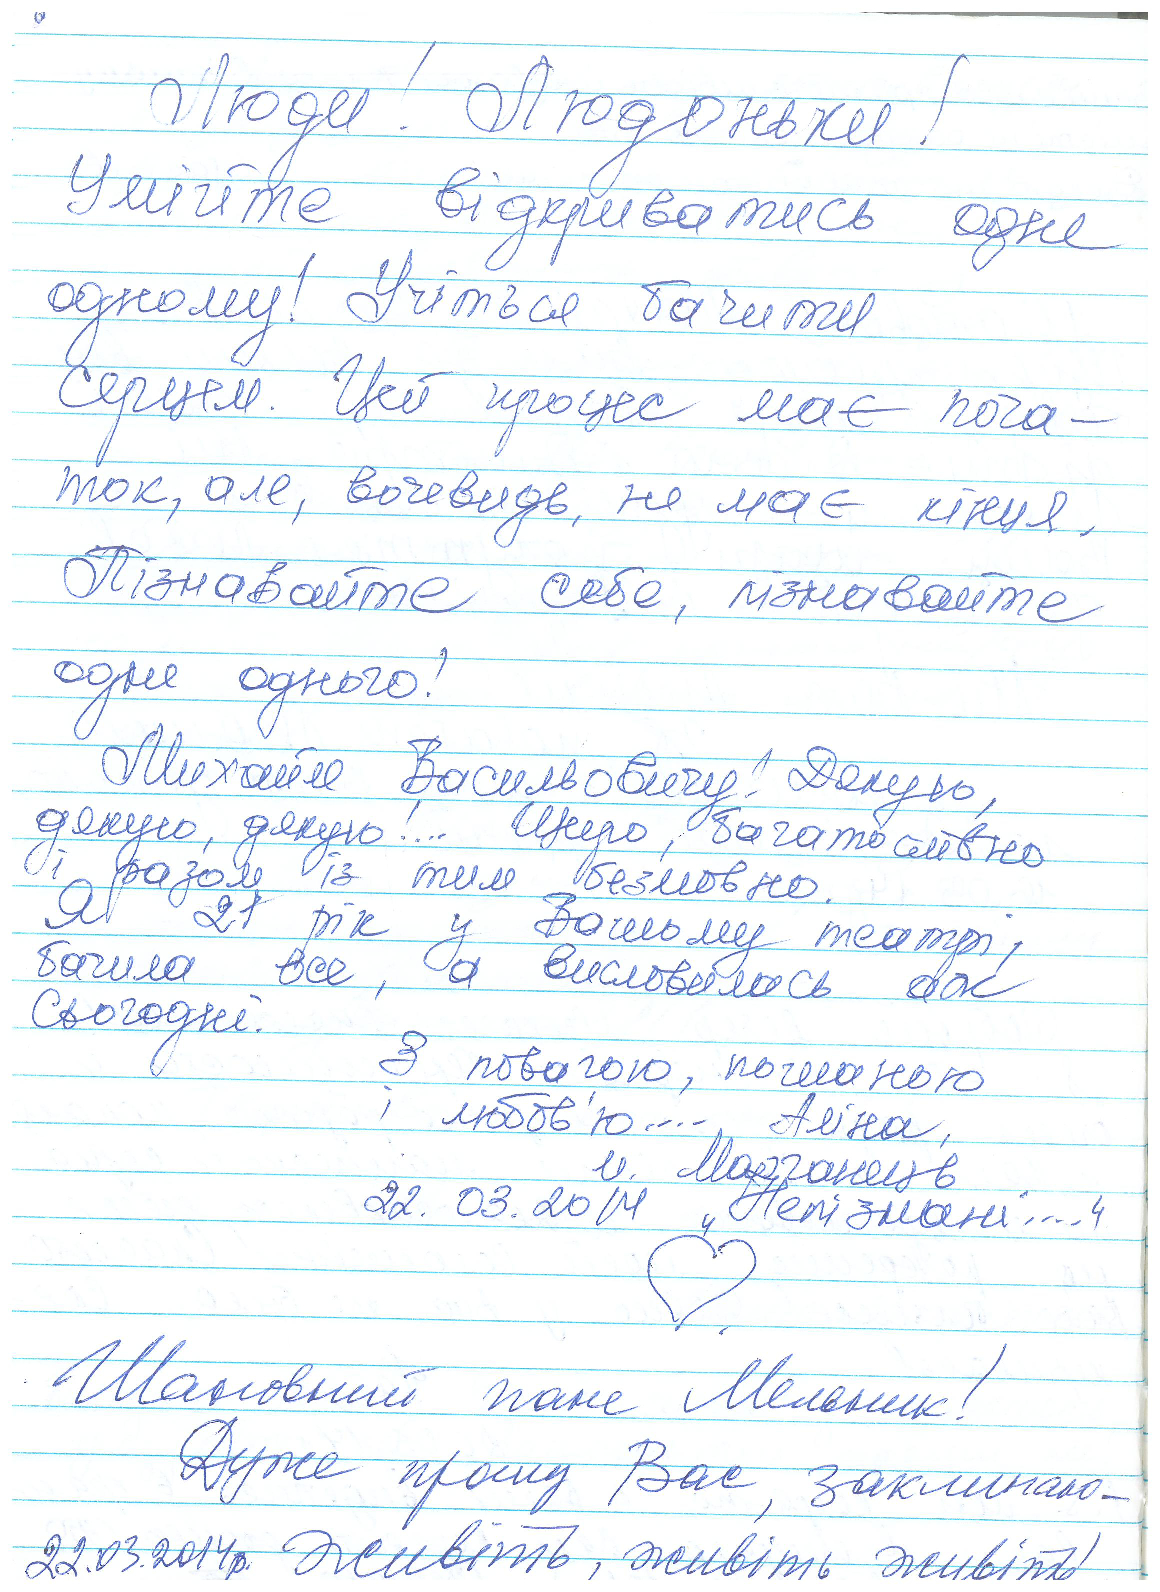 Люди! Людоньки!
Умійте відкриватись одне
одному! Учіться бачити
серцем. Цей процес має поча-
ток, але, вочевидь, не має кінця.
Пізнавайте себе, пізнавайте
одне одного!
Михайле Васильовичу! Дякую,
дякую, дякую!... Щиро, багатослівно
і разом із тим безмовно.
Я 21 рік у Вашому театрі,
бачила все, а висловилась аж
сьогодні.
З повагою, пошаною
і любов'ю.... Аліна,
м. Марганець
22.03.2014 „Непізнані....“
Шановний пане Мельник!
Дуже прошу Вас, заклинаю-
22.03.2014р. живіть, живіть живіть!